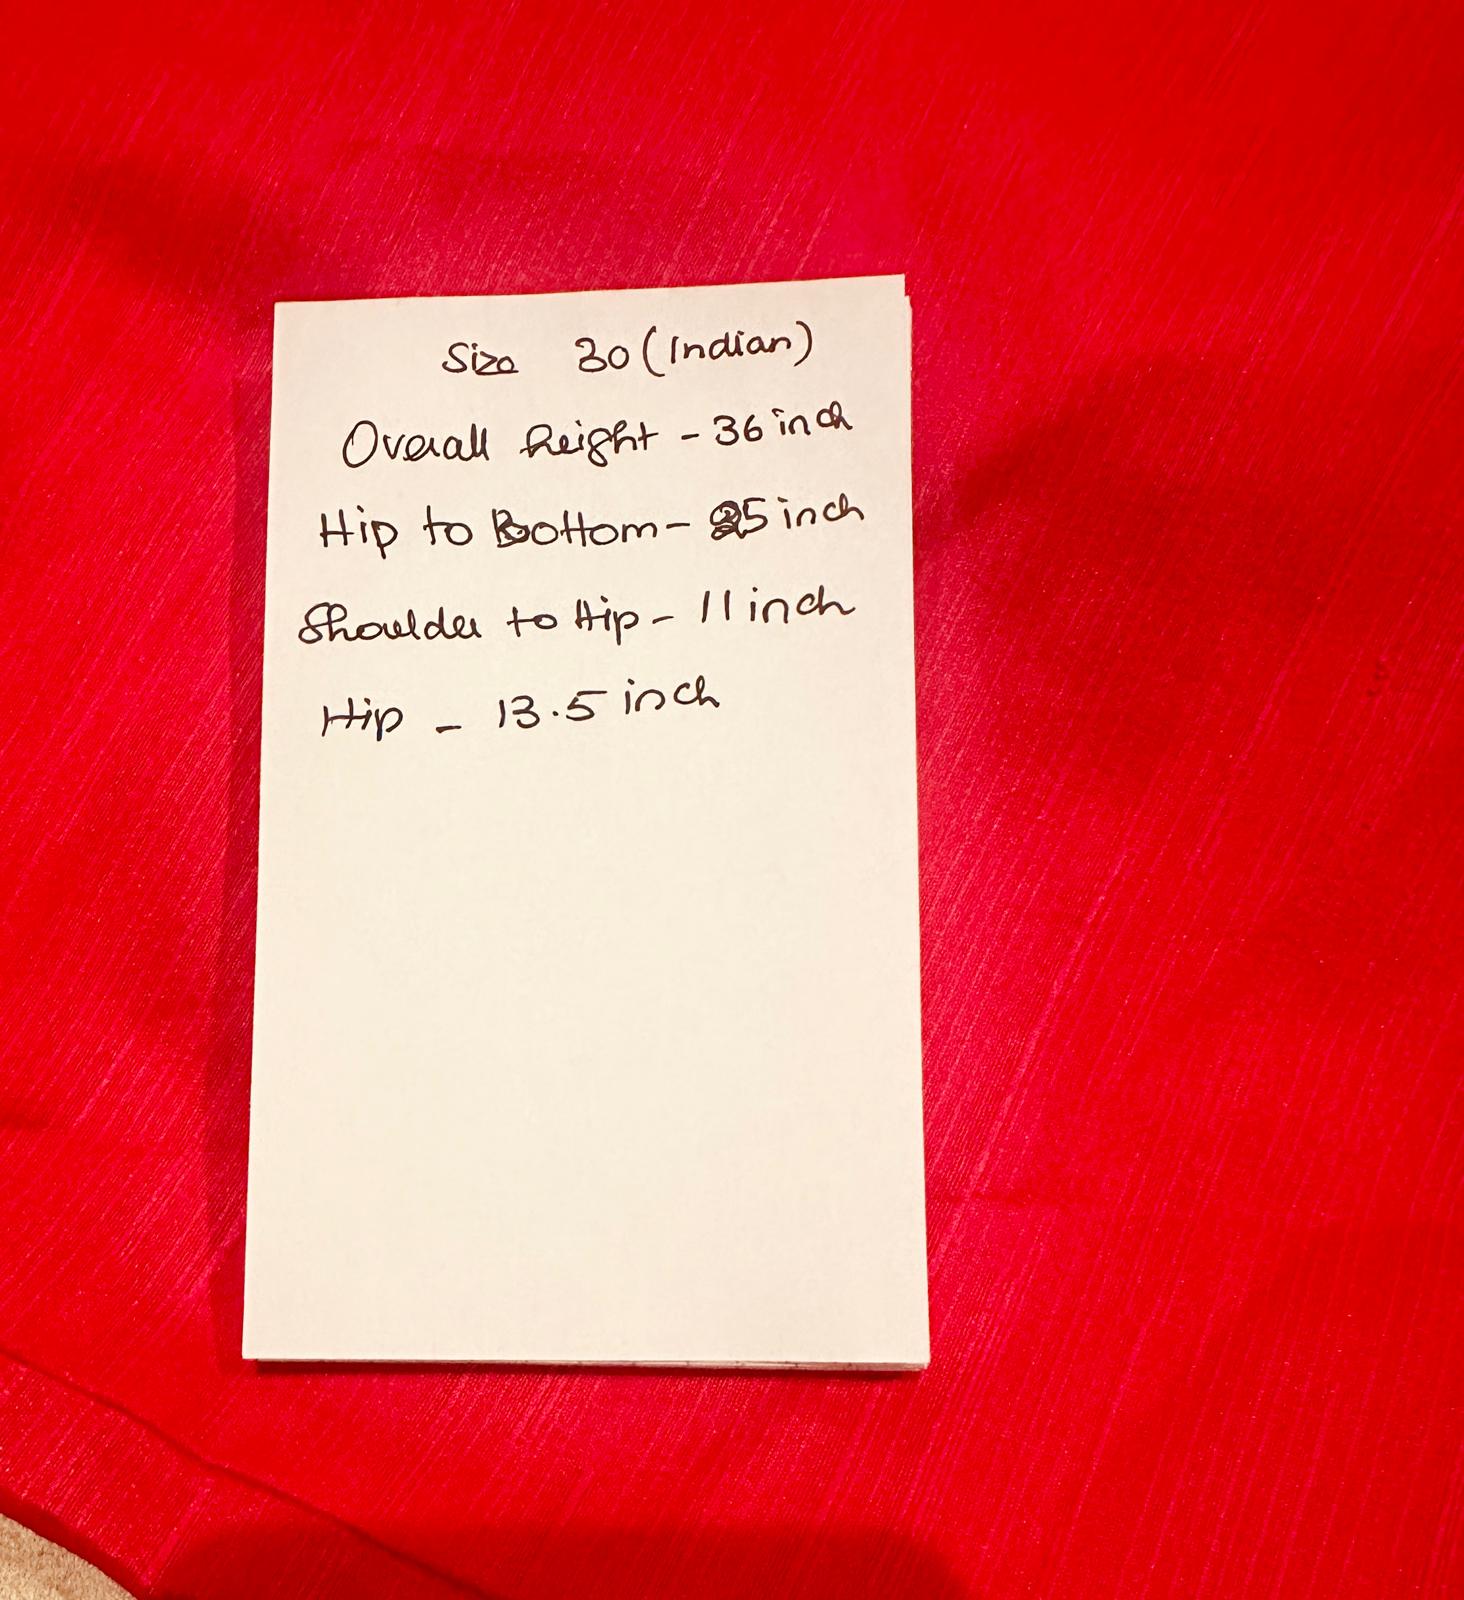 Size 30 (Indian)
Overall height - 36 inch
Hip to Bottom - 25 inch
Shoulder to Hip - 11 inch
Hip - 13.5 inch